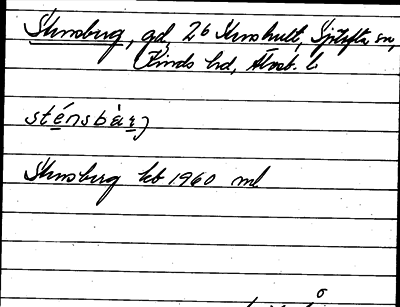 Stensberg, gd, 26 Stenshult, Sjötofta sn,
Kinds hd, Älvsb. l.
sténsbàrj
Stensberg kb 1960 ml